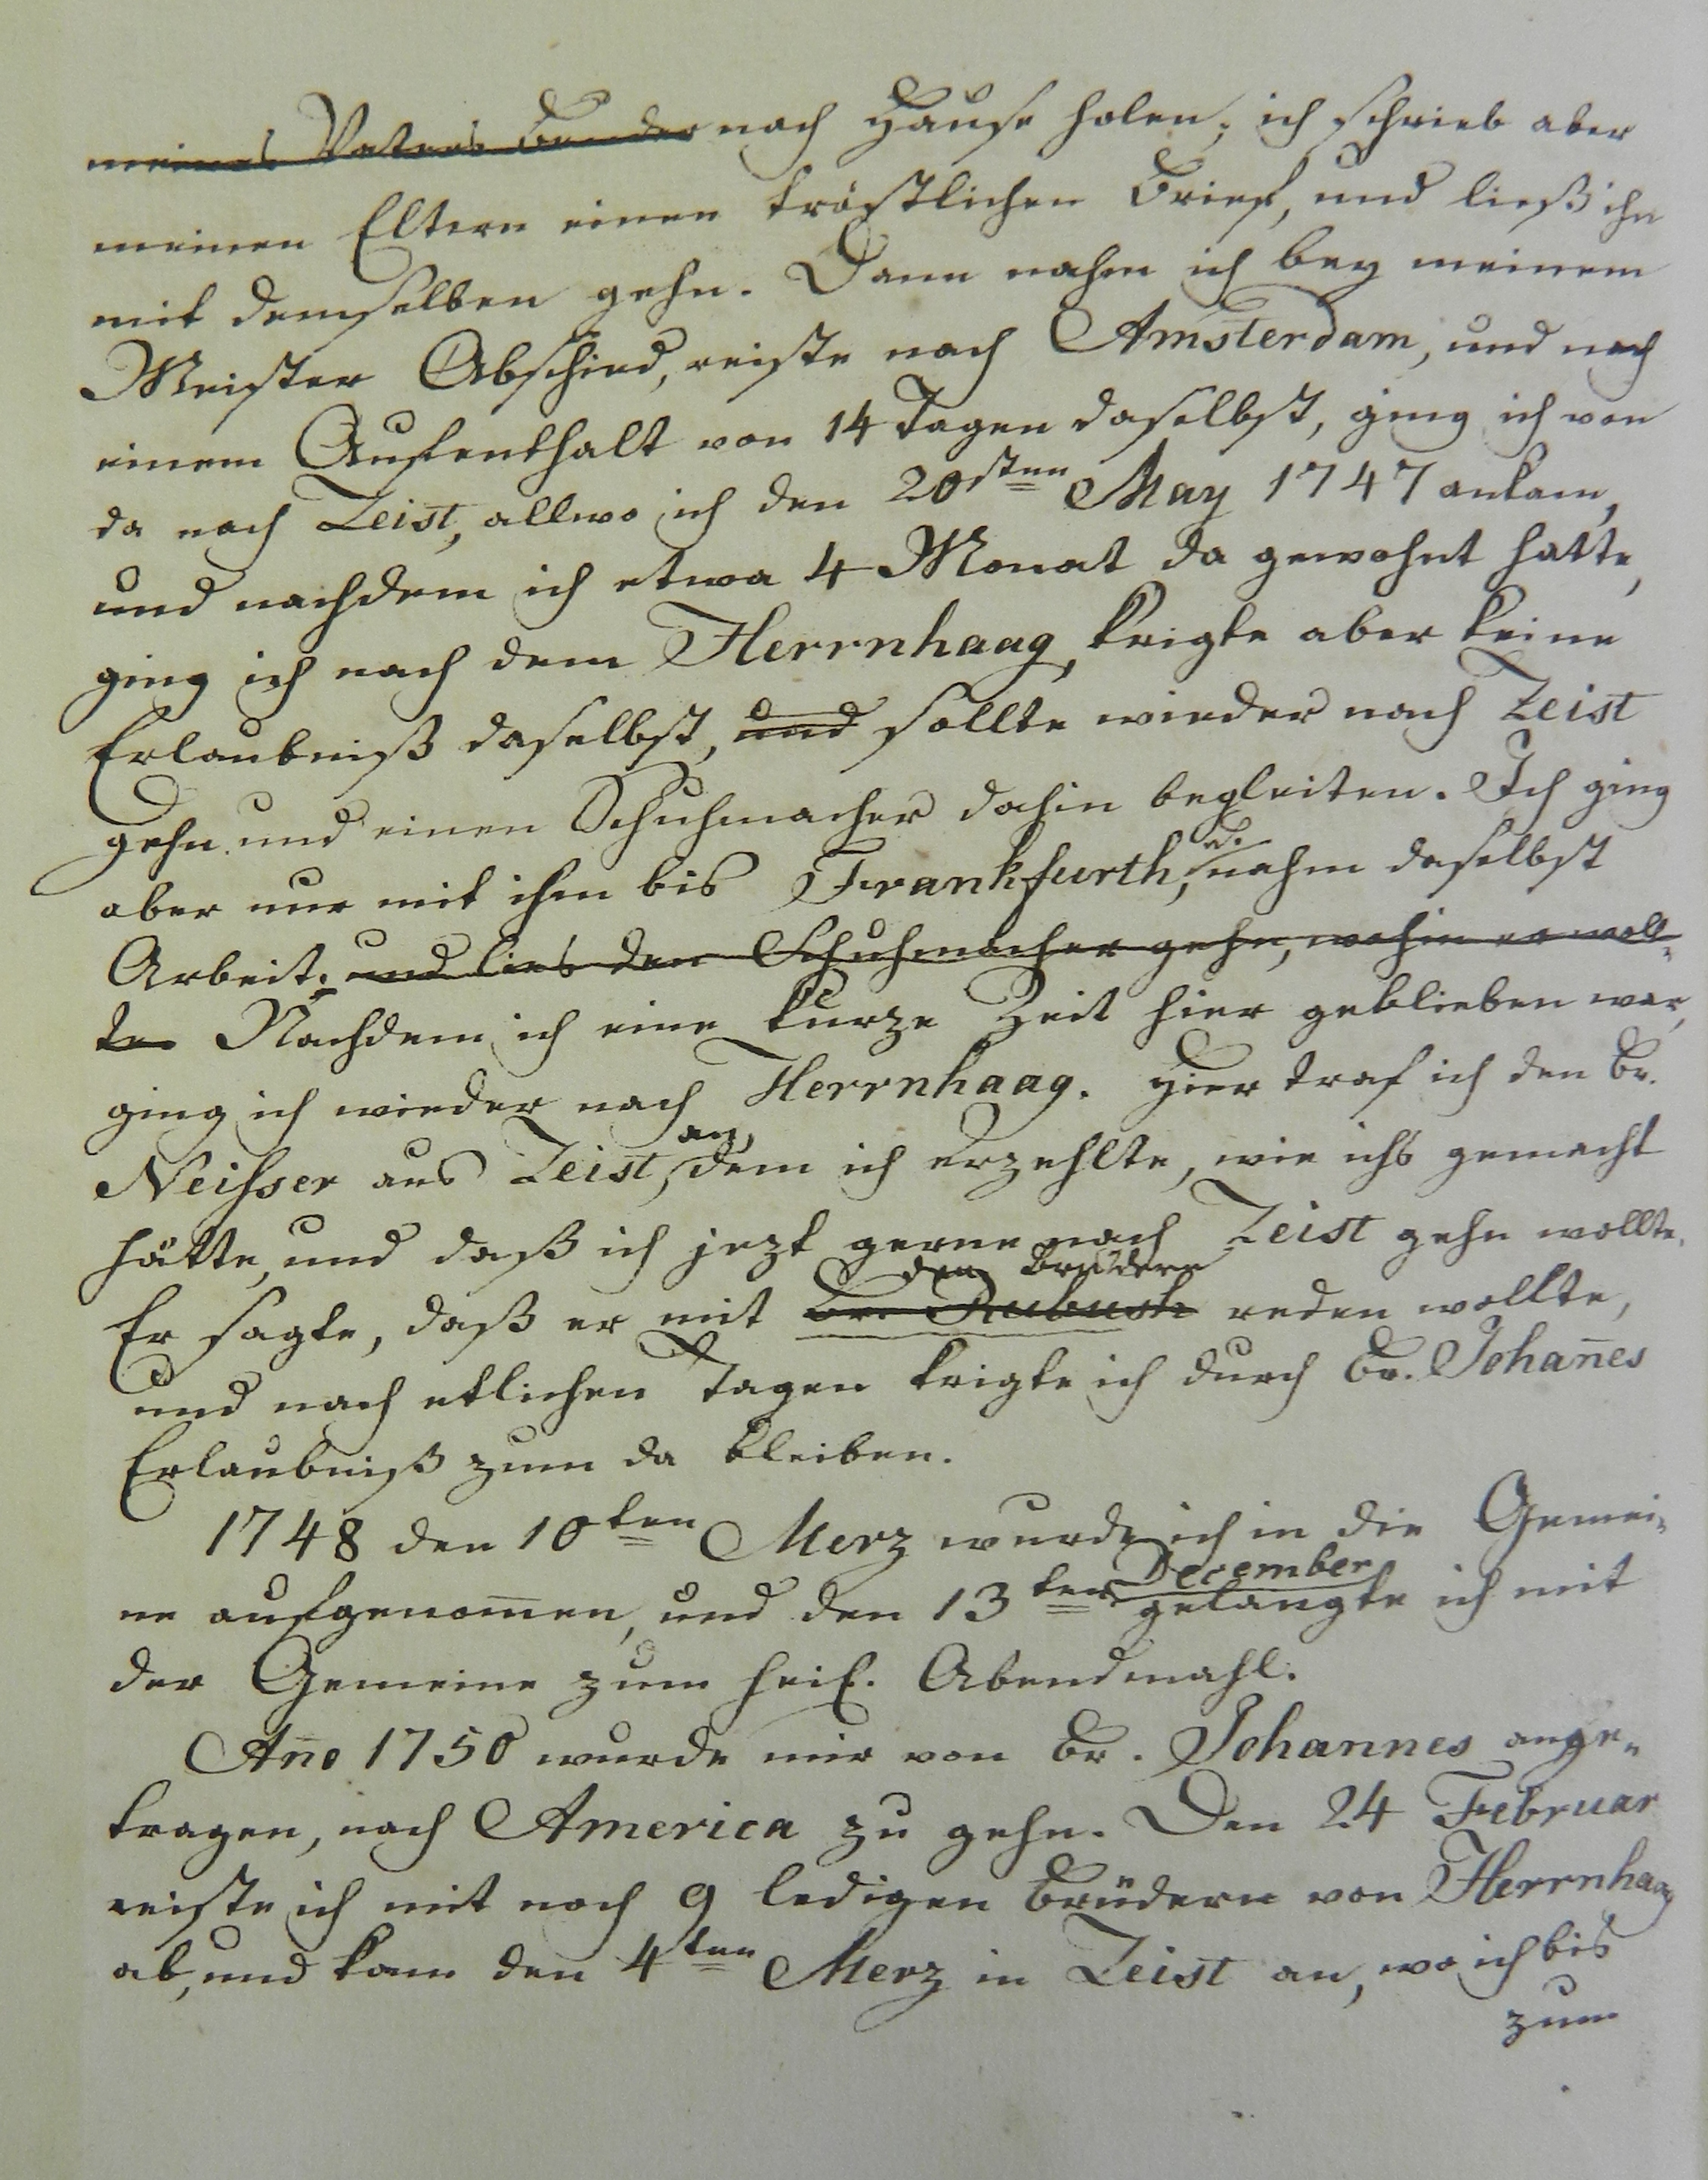 meines Vaters Bruder nach Hause holen; ich schrieb aber
meinen Eltern einen tröstlichen Brief, und ließ ihn
mit demselben gehn. Dann nahm ich bey meinem
Meister Abschied, reiste nach Amsterdam, und nach
einem Aufenthalt von 14 Tagen daselbst, ging ich von
da nach Zeist, allwo ich den 20sten May 1747 ankam,
und nachdem ich etwa 4 Monat da gewohnt hatte,
ging ich nach dem Herrnhaag, krigte aber keine
Erlaubniß daselbst, und sollte wieder nach Zeist
gehn und einen Schuhmacher dahin begleiten. Ich ging
aber nur mit ihm bis Frankfurth, u. nahm daselbst
Arbeit; und lies den Schuhmacher gehn, wohin er woll-
te. Nachdem ich eine kurze Zeit hier geblieben war,
ging ich wieder nach Herrnhaag. Hier traf ich den Br.
Neisser aus Zeist an, dem ich erzehlte, wie ichs gemacht
hätte, und daß ich jezt gerne nach Zeist gehn wollte.
den Brüdern
Er sagte, daß er mit Br. Rubusch reden wollte,
und nach etlichen Tagen krigte ich durch Br. Johan̄es
Erlaubniß zum da bleiben.
1748 den 10ten Merz wurde ich in die Gemei-
December
ne aufgenom̄en, und den 13ten gelangte ich mit
der Gemeine zum heil. Abendmahl.
An̄o 1750 wurde mir von Br. Johannes ange-
tragen, nach America zu gehn. Den 24 Februar
reiste ich mit noch 9 ledigen Brüdern von Herrnhaag
ab, und kam den 4ten Merz in Zeist an, wo ich bis
zum